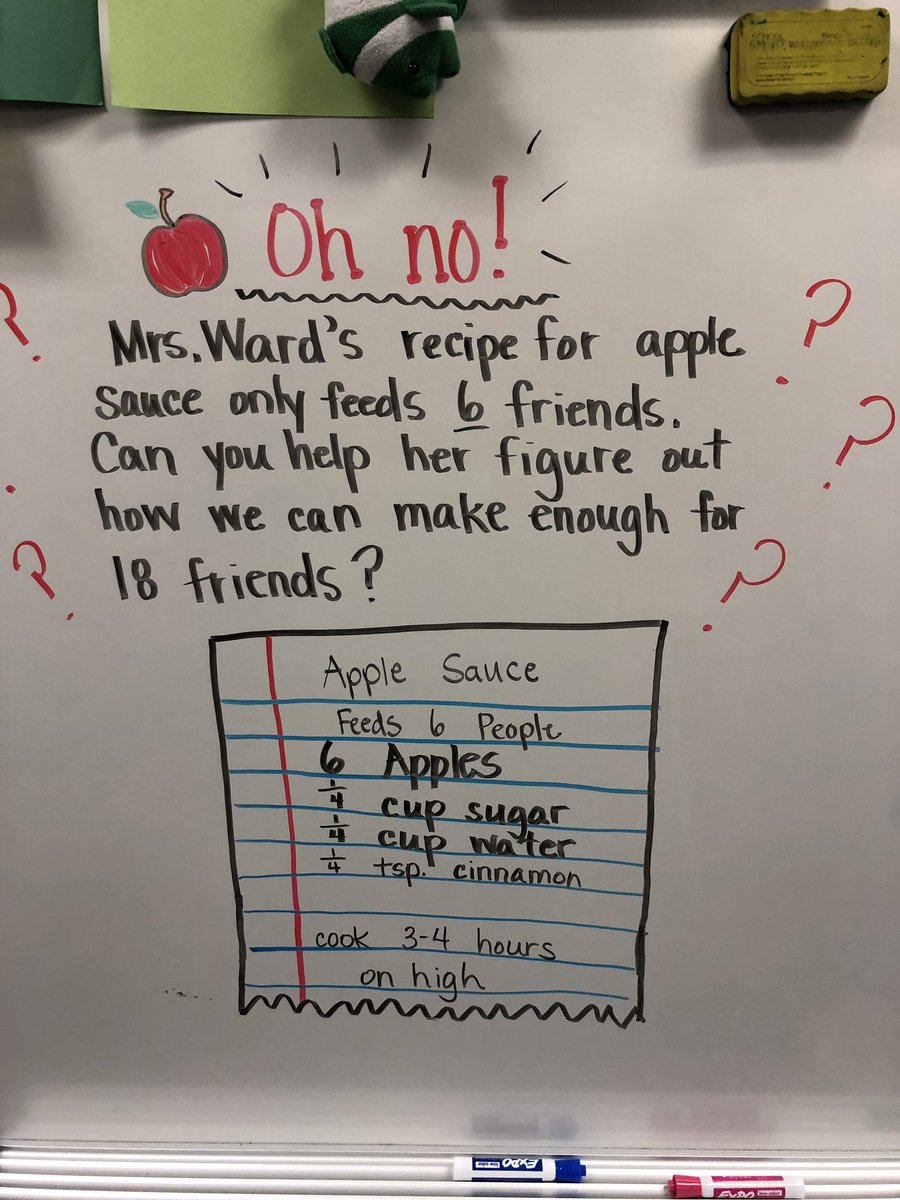 Oh no!
Mrs. Ward's recipe for apple
sauce only feeds 6 friends.
Can you help her figure out
how we can make enough for
18 friends?
Apple Sauce
Feeds 6 People
6 Apples
1/4 cup sugar
1/4 cup water
1/4 tsp. cinnamon
cook 3-4 hours
on high
EXPO
low odor
EXPO
low odor